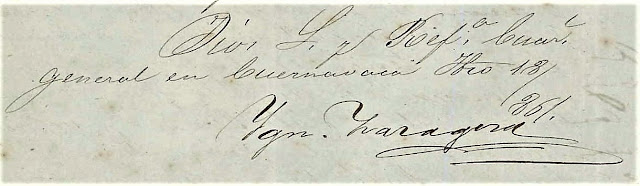 Dios L. y Ref.a Cuar.
general en Cuernavaca
861.
Ygn. Zaragoza